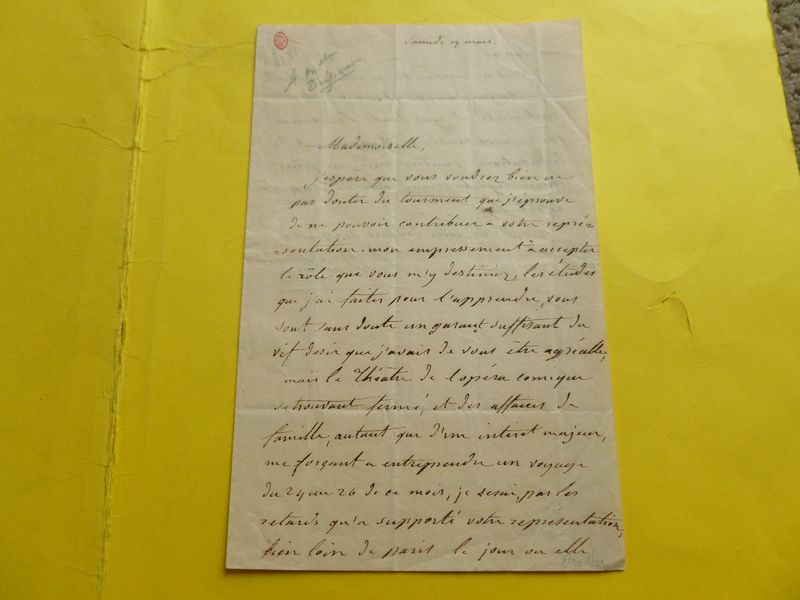 Samedi 19 mars.
Mademoiselle,
j'espère que vous voudrez bien ne
pas douter du tourment que j'éprouve
de ne pouvoir contribuer a votre repré=
=sentation. mon empressement à accepter
le rôle que vous m'y destiniez, les études
que j'ai faites pour l'apprendre, vous
sont sans doute un garant suffisant du
vif desir que j'avais de vous être agréable,
mais le Théâtre de l'opéra comique
se trouvant fermé, et des affaires de
famille, autant que d'un interet majeur,
me forçant a entreprendre un voyage
du 24 au 26 de ce mois, je serai, par les
retards qu'a supporté votre représentation,
bien loin de paris le jour ou elle